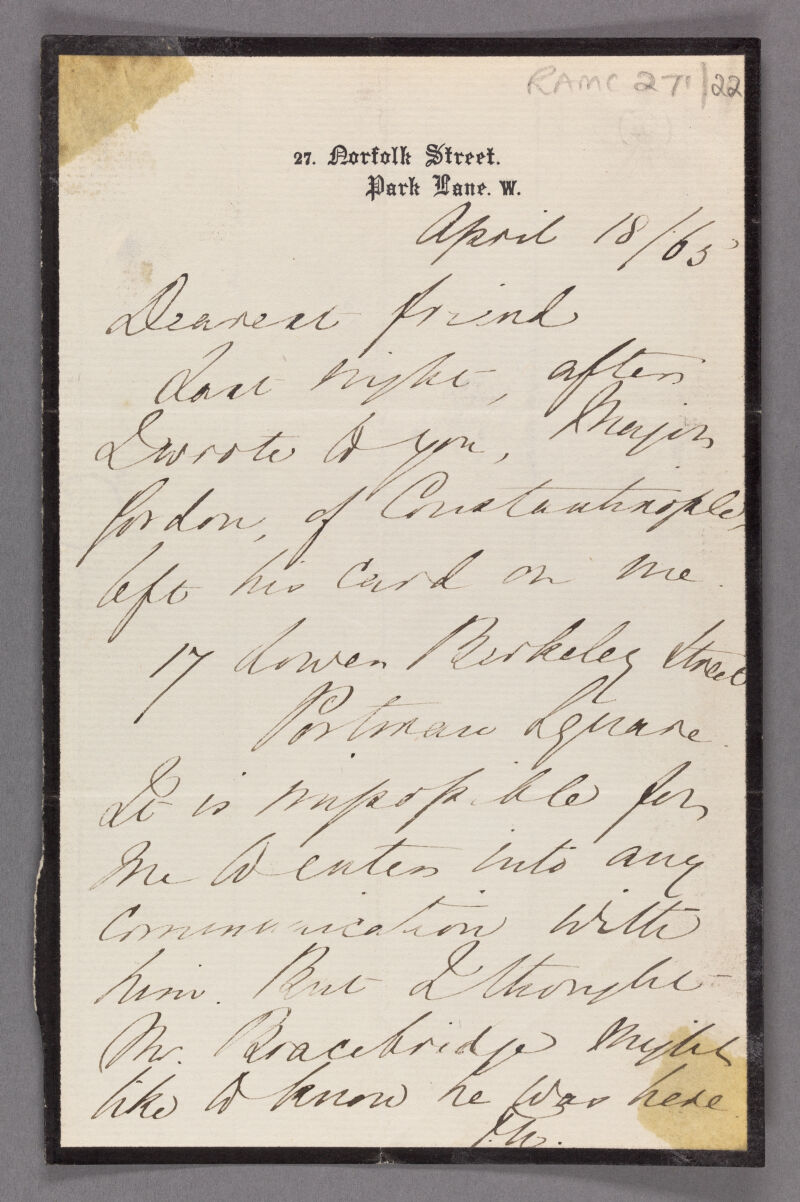 RAMC 271/22
27. Norfolk Street.
Park Lane. W.
April 18/65
Dearest friend
Last night, after
I wrote to you, Major
Gordon, of Constantinople,
left his card on me.
17 Lower Berkeley Street
Portman Square.
It is impossible for
me to enter into any
communication with
him. But I thought
Mr. Bracebridge might
like to know he was here
F.N.